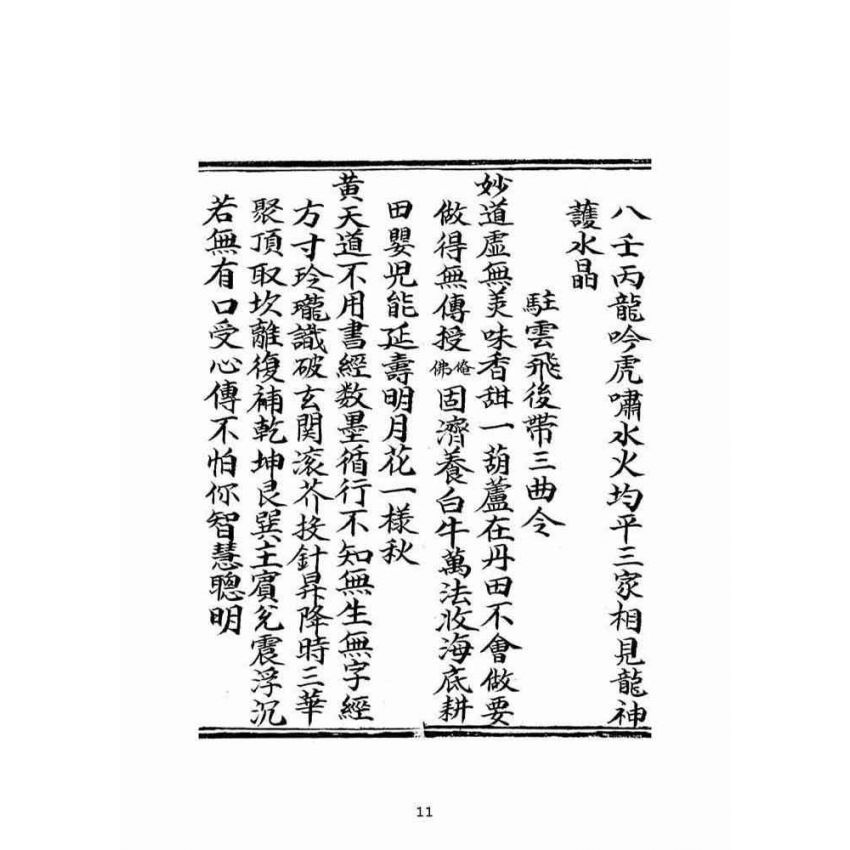 八壬丙龍吟虎嘯水火均平三家相見龍神
護水晶
駐雲飛後帶三曲令
妙道虛無美味香甜一葫蘆在丹田不會做要
做得無傳授俺佛固濟養白牛萬法收海底耕
田嬰児能延壽明月花一樣秋
黃天道不用書經数墨循行不知無生無字經
方寸玲瓏識破玄関滚芥投針昇降時三華
聚頂取坎離復補乾坤艮巽主賓兌震浮沉
若無有口受心傳不怕你智慧聰明
11